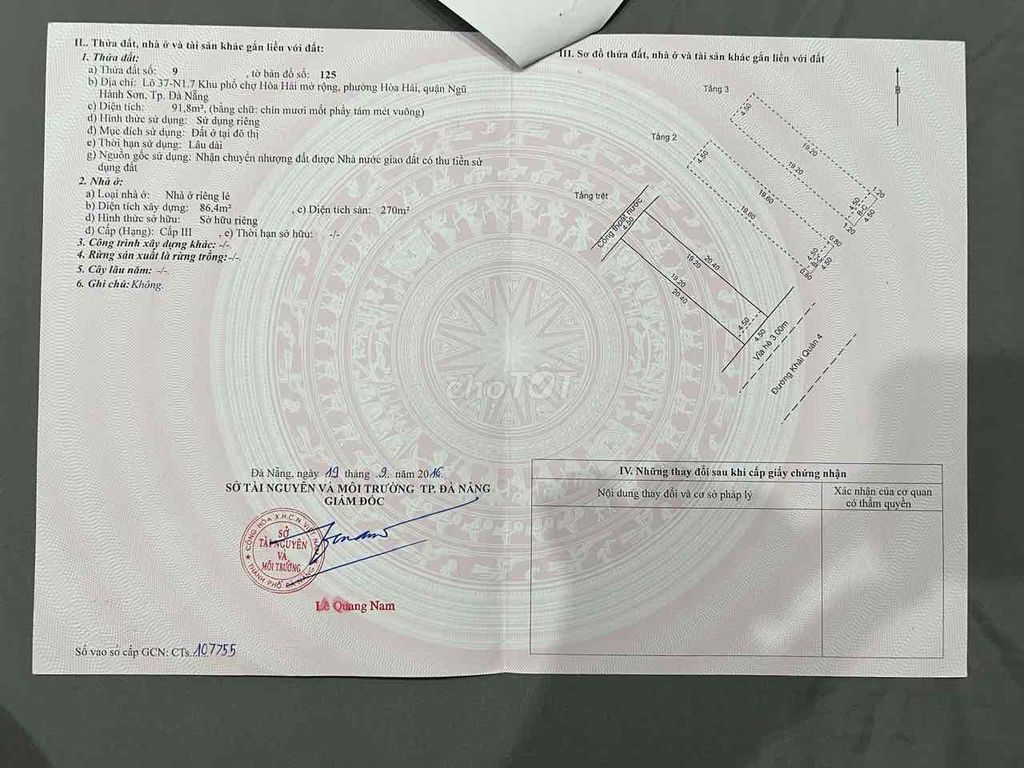 II.. Thửa đất, nhà ở và tài sản khác gắn liền với đất:
1. Thửa đất:
a) Thửa đất số: 9 , tờ bản đồ số: 125
b) Địa chỉ: Lô 37-N1.7 Khu phố chợ Hòa Hải mở rộng, phường Hòa Hải, quận Ngũ
Hành Sơn, Tp. Đà Nẵng
c) Diện tích: 91,8m², (bằng chữ: chín mươi mốt phẩy tám mét vuông)
d) Hình thức sử dụng: Sử dụng riêng
đ) Mục đích sử dụng: Đất ở tại đô thị
e) Thời hạn sử dụng: Lâu dài
g) Nguồn gốc sử dụng: Nhận chuyển nhượng đất được Nhà nước giao đất có thu tiền sử
dụng đất
2. Nhà ở:
a) Loại nhà ở: Nhà ở riêng lẻ
b) Diện tích xây dựng: 86,4m² , c) Diện tích sàn: 270m²
d) Hình thức sở hữu: Sở hữu riêng
đ) Cấp (Hạng): Cấp III , e) Thời hạn sở hữu: -/-
3. Công trình xây dựng khác: -/-
4. Rừng sản xuất là rừng trồng:-/-.
5. Cây lâu năm: -/-.
6. Ghi chú: Không.
Đà Nẵng, ngày 19 tháng 9 năm 2016
SỞ TÀI NGUYÊN VÀ MÔI TRƯỜNG TP. ĐÀ NẴNG
GIÁM ĐỐC
CỘNG HÒA X.H.C.N VIỆT NAM
SỞ
TÀI NGUYÊN
VÀ
MÔI TRƯỜNG
THÀNH PHỐ ĐÀ NẴNG
Lê Quang Nam
Số vào sổ cấp GCN: CTs.107755
III. Sơ đồ thửa đất, nhà ở và tài sản khác gắn liền với đất
B
Tầng 3
4.50
19.20
19.20
1.20
4.50
B.C
4.50
1.20
Tầng 2
4.50
19.80
19.80
0.60
4.50
4.50
0.60
Tầng trệt
Cống thoát nước
4.50
19.20
20.40
19.20
20.40
4.50
4.50
Vỉa hè 3.00m
Đường Khái Quân 4
IV. Những thay đổi sau khi cấp giấy chứng nhận
Nội dung thay đổi và cơ sở pháp lý
Xác nhận của cơ quan
có thẩm quyền
choTỐT